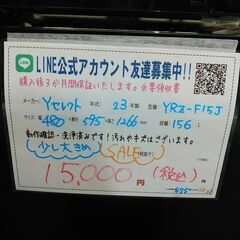 LINE公式アカウント友達募集中!!
購入後3か月間保証いたします。※要領収書
メーカー:Yセレクト 年式:23年 型番:YRZ-F15J
サイズ:幅480×奥行595×高さ1266mm 容量156L
動作確認・洗浄済みです!汚れやキズはございます。
少し大きめ SALE(税抜き)
15,000円(税込)